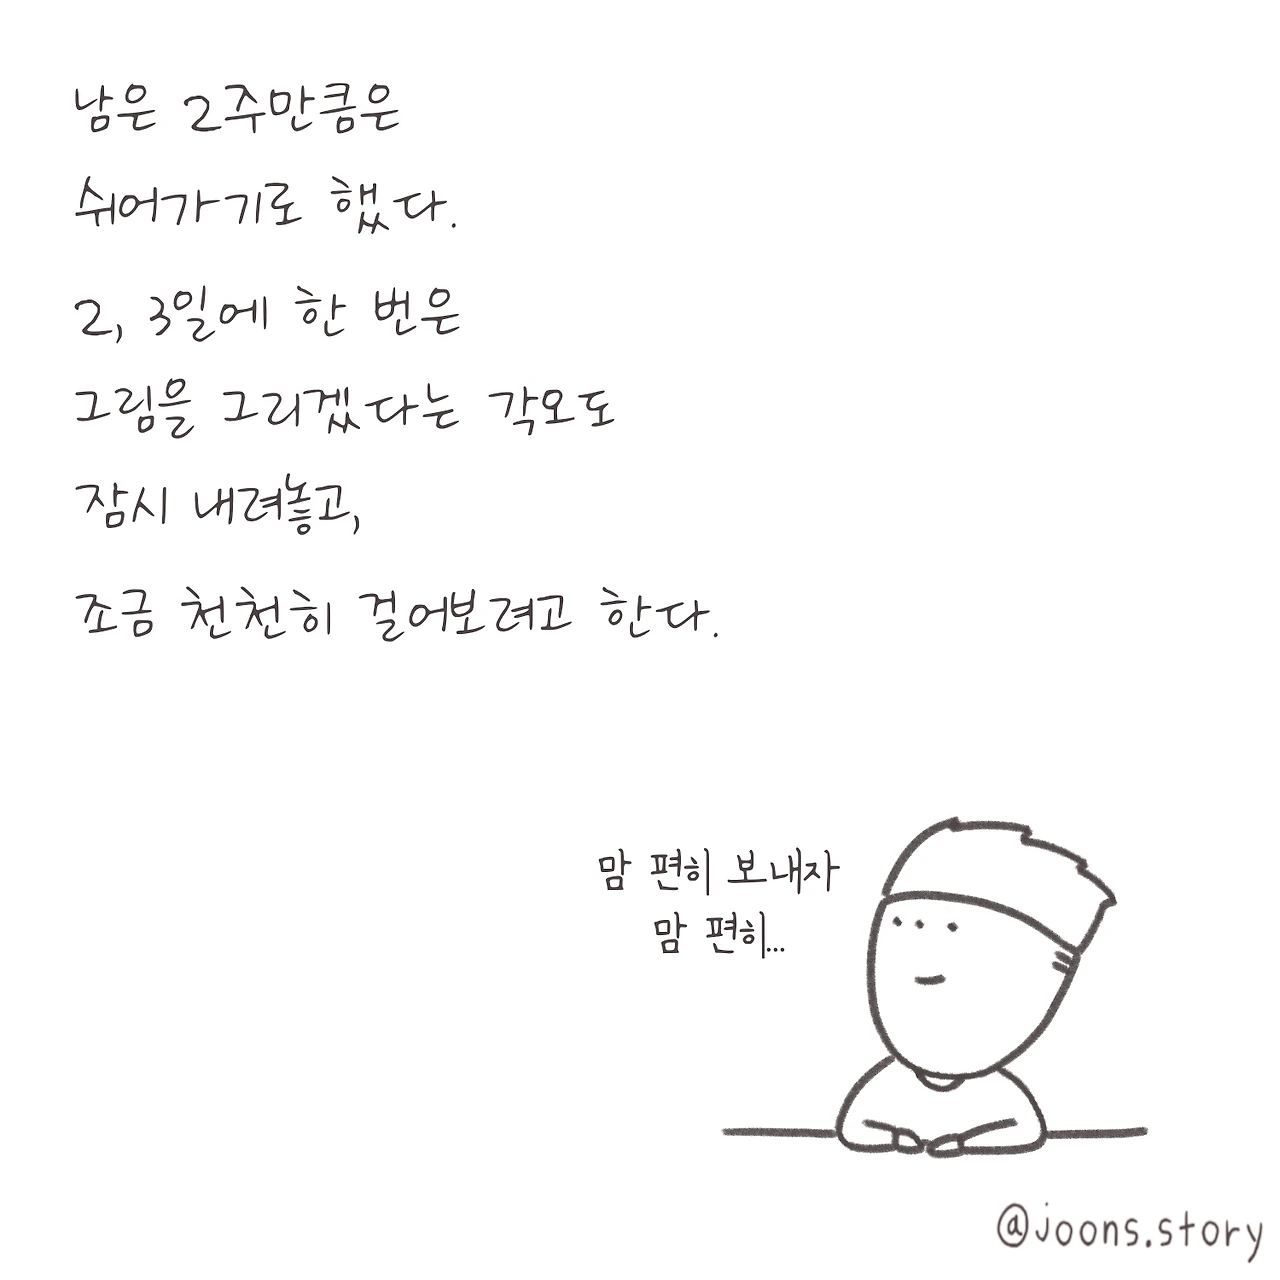 남은 2주만큼은
쉬어가기로 했다.
2, 3일에 한 번은
그림을 그리겠다는 각오도
잠시 내려놓고,
조금 천천히 걸어보려고 한다.
맘 편히 보내자
맘 편히...
@joons.story